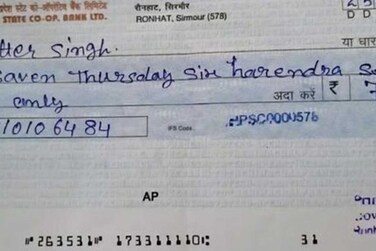 प्रदेश स्टेट को-ऑपरेटिव बैंक लिमिटेड रोनहाट, सिरमौर
STATE CO-OP. BANK LTD. RONHAT, Sirmour (578)
D D
tter Singh. या धार
Saven Thursday Six harendra
only अदा करें ₹ 7
1010 64 84 IFS Code: HPSC0000576
AP
⑈263531⑈ 173311110⑆ 31